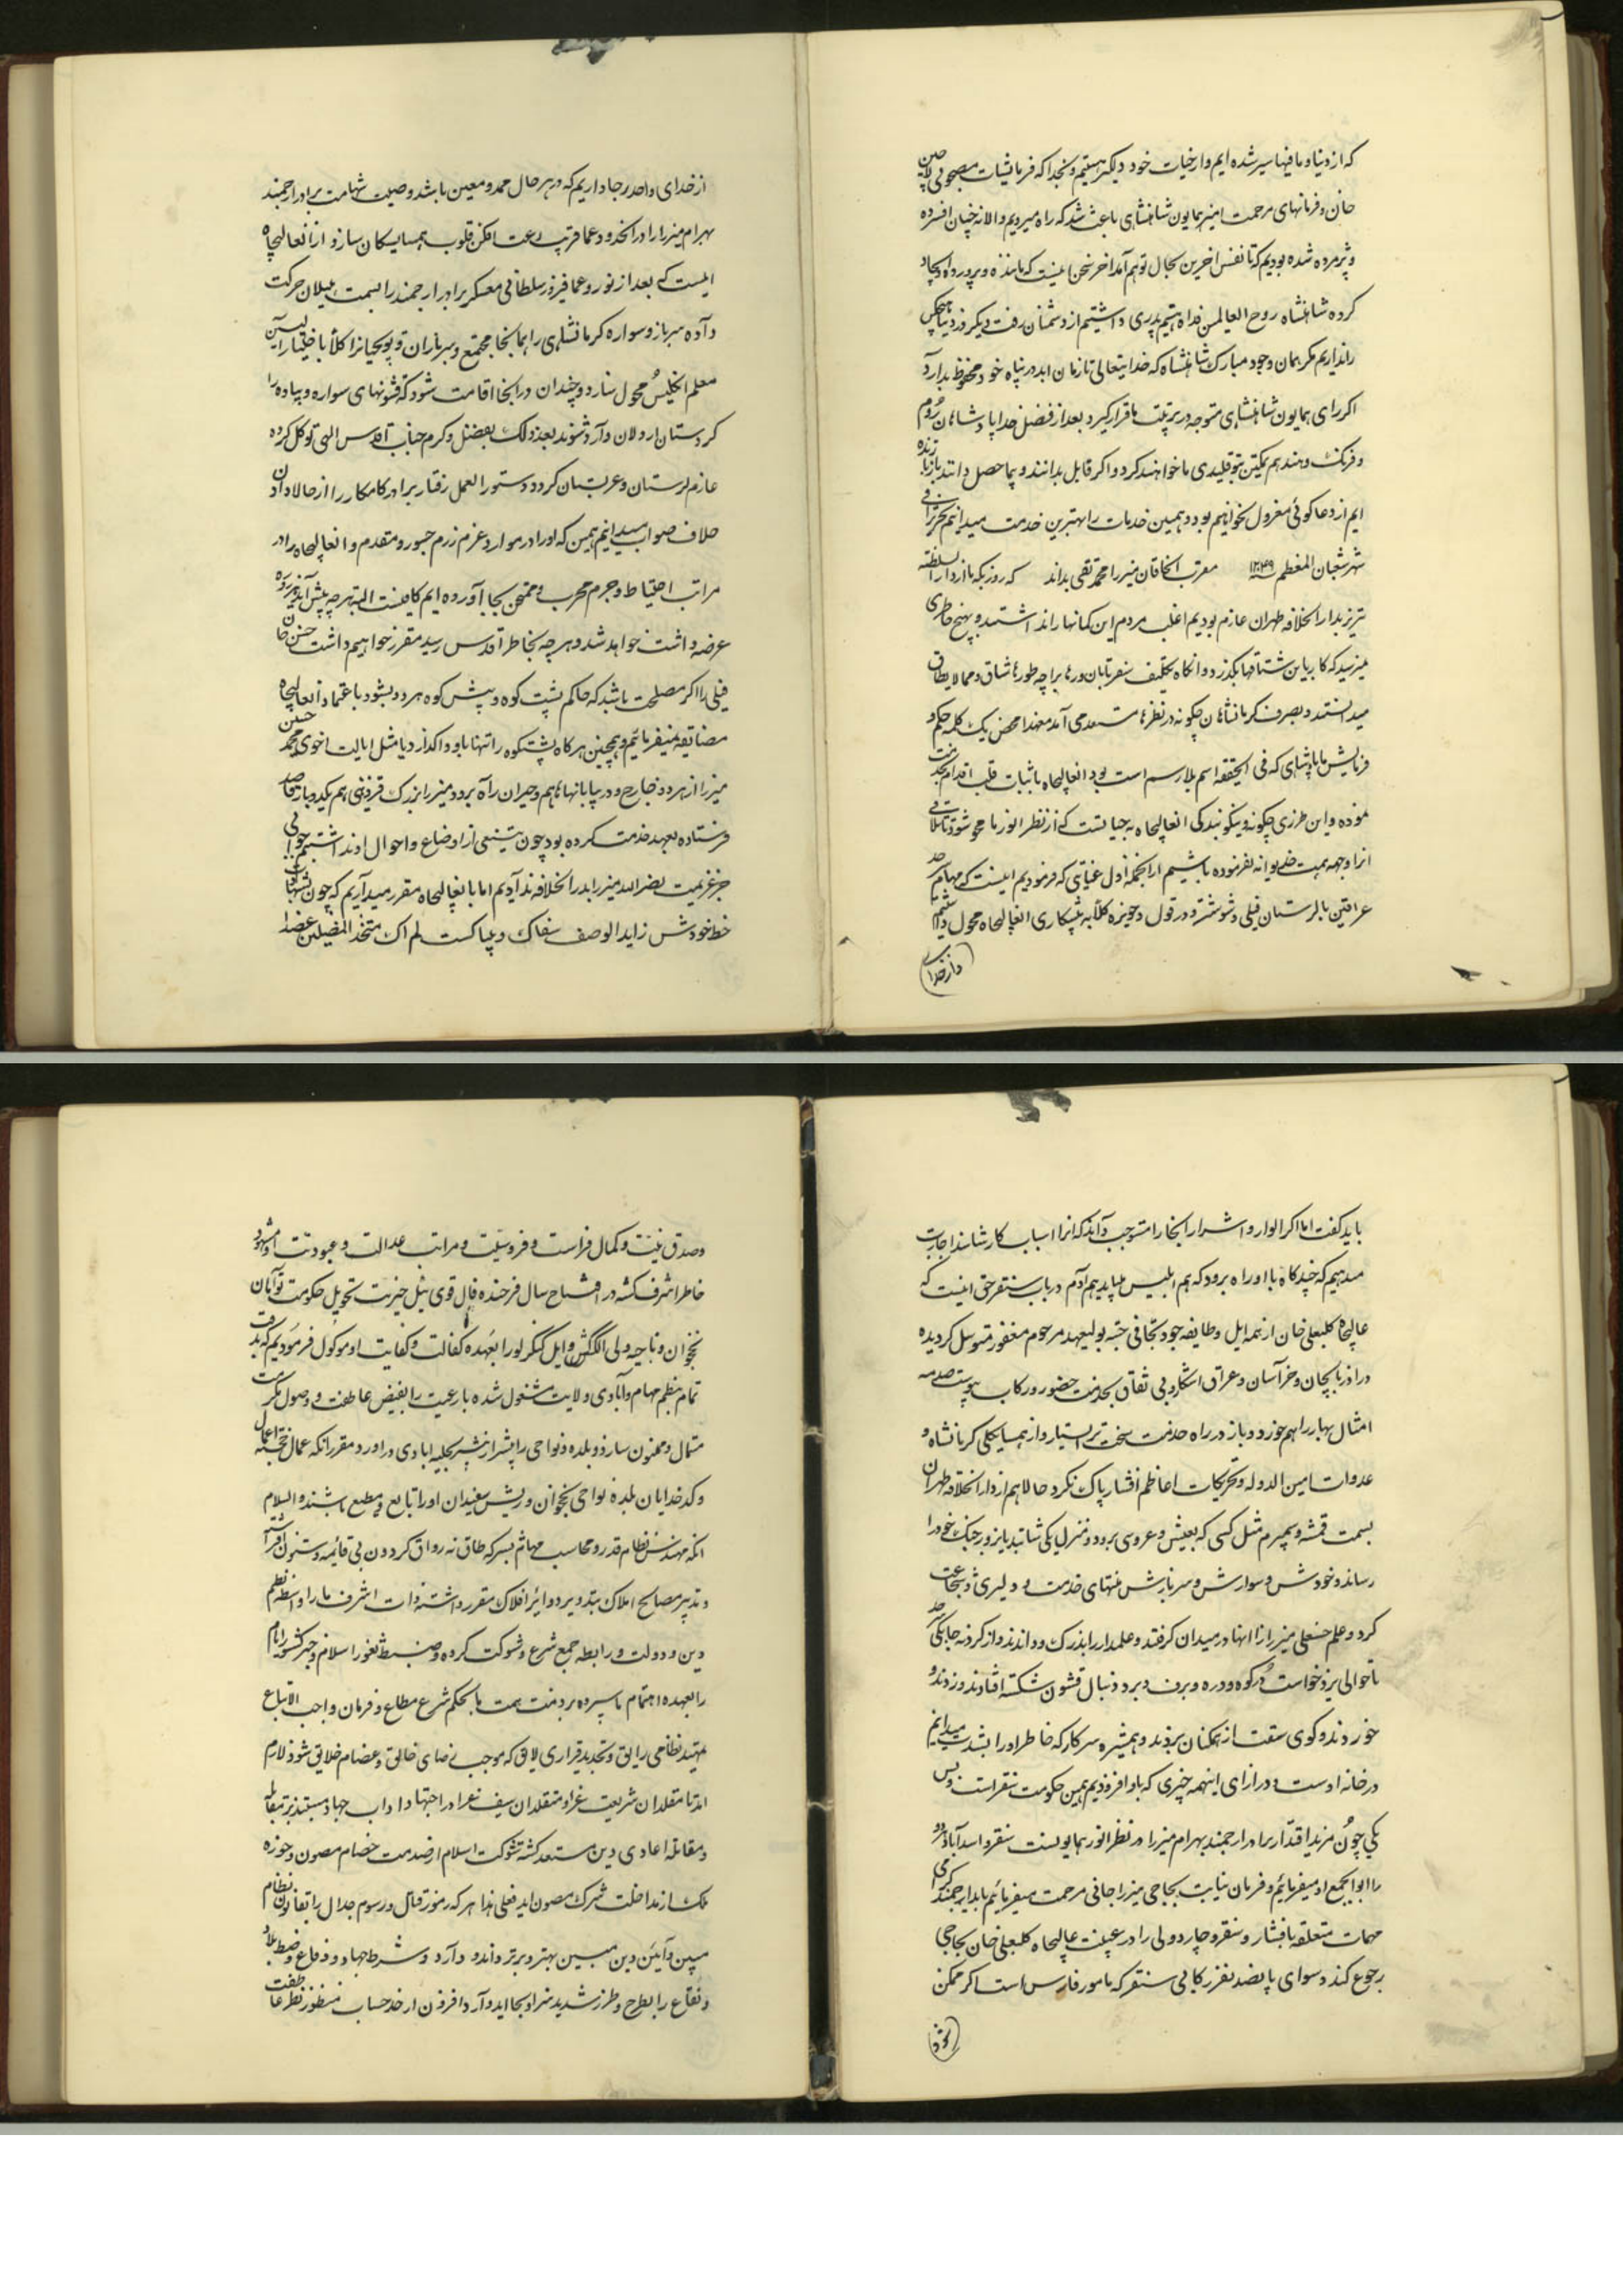 که از دنیا و مافیها سیر شده ایم و از حیات خود دلگیر هستیم و بخدا که فرمایشات مصحوبی حسن
خان و فرمانهای مرحمت آمیز همایون شاهنشاهی باعث شد که راه میرویم و الا نه چنان افسرده
و پژمرده شده بودیم که تا نفس آخرین بحال توهم آمد آخر سخن اینست که ما بنده و پرورده و ایجاد
کرده شاهنشاه روح العالمین فداه هستیم پدری داشتیم از دشمنان رفت دیگر در دنیا هیچکس
را نداریم مگر همان وجود مبارک شاهنشاه که خدایتعالی تا زمان ابد در پناه خود محفوظ بدارد
اگر رای همایون شاهنشاهی متوجه در تربیت ما قرار گیرد بعد از فضل خدا پادشاهان روم
و فرنگ و هند هم تمکین بتوقلیدی ما خواهند کرد و اگر قابل بدانند و بما حصل دانند باز تا زنده
ایم از دعاگوئی معزول نخواهیم بود و همین خدمات را بهترین خدمت میدانیم تحریراً فی
شهر شعبان المعظم ۱۲۴۹ مقرب الخاقان میرزا محمد تقی بداند که روزیکه ما از دار السلطنه
تبریز بدار الخلافه طهران عازم بودیم اغلب مردم این گمانها را نداشتند و بهیچ خاطری
نمیرسید که کار باین شتابها بگذرد و آنگاه تکلیف سفر تابان
میدانستند و بصرف کرمانشاهان چگونه در نظرها مستبعد می آمد معهذا محض یک کلمه حکم و
فرمایش ما پادشاهی که فی الحقیقه اسم بلا رسم است بود آنعالیجاه باثبات قلب اقدام بخدمت
نموده و این طرزی چگونه و نیکو بندگی آنعالیجاه نه چیزیست که از نظر انور ما محو شود و تلافی
آنرا وجهه همت خدیوانه نفرموده باشیم از آنجمله اول عنایتی که فرمودیم اینست که مهام سرحد
عراقین با لرستان فیلی و شوشتر و دزفول و حویزه کلاً به پیشکاری آنعالیجاه محول داشتیم
و از خدا
از خدای واحد رجا داریم که در هر حال ممد و معین باشد وصیت شهامت برادر ارجمند
بهرام میرزا را در آنحدود عما قریب رعب افکن قلوب همسایگان سازد از آنعالیجاه
اینست که بعد از نوروز عما فیروز سلطانی معسکر برادر ارجمند را بسمت گیلان حرکت
داده سرباز و سواره کرمانشاهی را همانجا مجتمع و سربازان و توپچیانرا کلاً باختیار
معلم انگلیس محول سازد و چندان در آنجا اقامت شود که قشونهای سواره و پیاده
کردستان اردلان وارد شوند بعد ذلک بفضل و کرم جناب اقدس الهی توکل کرده
عازم لرستان و عربستان گردد و دستور العمل رفتار برادر کامکار را از حالا دادن
خلاف صواب میدانیم همین که او را در موارد عزم و رزم جسور و مقدم و آنعالیجاه را در
مراتب احتیاط و جزم مجرب و ممتحن بجا آورده ایم کافیست البته هر چه پیش آید
عرضه داشت خواهد شد و هر چه بخاطر اقدس رسید مقرر خواهیم داشت حسن خان
فیلی را اگر مصلحت باشد که حاکم پشت کوه و پیش کوه هر دو بشود باعتماد آنعالیجاه
مضایقه نمیفرمائیم و همچنین هر گاه پشتکوه را تنها باو واگذارد یا مثل ایالت اخوی محمد حسین
میرزا از هر دو خارج و در بیابانها هایم و حیران راه برود میرزا بزرگ قزوینی هم یکدو بار قاصد
فرستاده بعهد خدمت کرده بود چون تتبعی از اوضاع و احوال او نداشتیم جوابی
جز عزیمت نصر الله میرزا بدار الخلافه ندادیم اما بآنعالیجاه مقرر میداریم که چون
خط خودش زاید الوصف سفاک و بیباکست لم اک متخذ المضلین عضدا
باید گفت اما اگر الوار و اشرار آنجا را مستوجب داند که آنرا اسباب کار شناسند اجازت
میدهیم که چندگاه با او راه برود که هم ابلیس بباید هم آدم در باب سنقر حق اینست که
عالیجاه کلبعلی خان از همه ایل و طایفه خود تجافی جسته بولیعهد مرحوم مغفور متوسل گردیده
در آذربایجان و خراسان و عراق آشکار و بی نفاق بخدمت حضور و رکاب پیوست صدمه
امثال بهار را هم خورد و باز در راه خدمت سخت تر ایستاد و از همسایگی کرمانشاه و
عداوت امین الدوله و تحریکات اعاظم افشار باک نکرد حالا هم از دار الخلافه طهران
بسمت قمشه و سمیرم مثل کسی که بعیش و عروسی برود دو منزل یکی شتابید تا بروز جنگ خود را
رساند و خودش و سوارش و سربازش منتهای خدمت و دلیری و شجاعت
کرد و علم حسنعلی میرزا را آنها در میدان گرفتند و علمدار را بدرک دواندند و از گردنه
تا حوالی یزدخواست در کوه و دره و برف و برد دنبال قشون شکسته افتادند و زدند و
خوردند و گوی سبقت از همگنان بردند و همشیره سرکار که خاطر او را بشدت میدانیم
در خانه اوست در ازای اینهمه چیزی که باو افزودیم همین حکومت سنقر است و بس
یکی چون مزید اقتدار برادر ارجمند بهرام میرزا در نظر انور همایونست سنقر و اسدآباد هر دو
را ابوابجمع او میفرمائیم و فرمان نیابت بحاجی میرزا جانی مرحمت میفرمائیم باید ارجمندی
مهمات متعلقه بافشار و سنقر و چاردولی را در غیبت عالیجاه کلبعلی خان بحاجی
رجوع کند و سوای پانصد نفر رکابی سنقر که مأمور فارس است اگر ممکن
و صدق نیت و کمال فراست و فروسیت و مراتب عدالت و عبودیت او مشهود
خاطر اشرف گشته در افتتاح سال فرخنده فال قوی ئیل خیریت تحویل حکومت تومان
نخجوان و ناحیه ولی الکش و ایل کنگرلو را بعهده کفالت و کفایت او موکول فرمودیم که بدقت
تمام بنظم مهام و آبادی ولایت مشغول شده با رعیت را بفیض عاطفت و وصول مکرمت
متمال و ممنون سازد و بلده و نواحی را بیشتر از پیشتر بحلیه آبادی در آورد مقرر آنکه عمال خجسته اعمال
و کدخدایان بلده نواحی نخجوان و ریش سفیدان او را تابع و مطیع باشند والسلام
آنکه مهندس نظام قدر و محاسب مهام بسر که طاق نه رواق گردون بی قائمه و ستون افراشته
و تدبیر مصالح املاک بتدویر دوایر افلاک مقرر داشته ذات اشرف ما را واسطه نظم
دین و دولت و رابطه جمع شرع و شوکت کرده و ضبط ثغور اسلام و
را بعهده اهتمام ما سپرده بر ذمت همت ما بحکم شرع مطاع و فرمان واجب الاتباع
تمهید نظامی رایق و تجدید قراری لایق که موجب رضای خالق و اعتصام خلایق شود لازم
آمد تا مقلدان شریعت غرا و متقلدان سیف غزا در اجتهاد آداب جهاد مستبد بر مقابله
و مقاتله اعادی دین مستعد گشته شوکت اسلام از صدمت خصام مصون و حوزه
ملک از مداخلت شرک مصون آید فعلی هذا هر که رموز قتال و رسوم جدال را بقانون نظام
مبین و آیین دین مبین بهتر و برتر داند و دارد و شرط جهاد و دفاع و ضبط بلاد
و بقاع را بطرح و طرز شدید سزاوار بجا آید و آرد افزون از حد حساب منظور نظر عاطفت